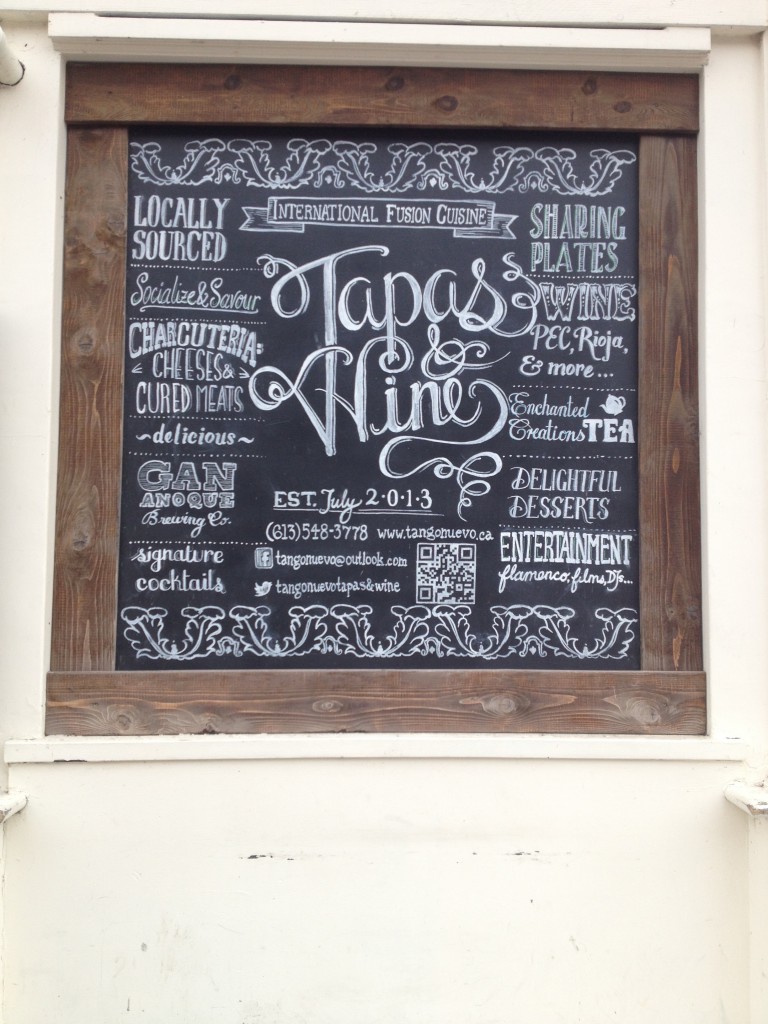 INTERNATIONAL FUSION CUISINE
Tapas
&
Wine
EST. July 2·0·1·3
(613)548-3778 www.tangonuevo.ca
tangonuevo@outlook.com
tangonuevotapas&wine
LOCALLY
SOURCED
Socialize & Savour
CHARCUTERIA:
CHEESES &
CURED MEATS
~delicious~
GAN
ANOQUE
Brewing Co.
signature
cocktails
SHARING
PLATES
WINE
PEC, Rioja,
& more...
Enchanted
Creations TEA
DELIGHTFUL
DESSERTS
ENTERTAINMENT
flamenco, films, DJs...